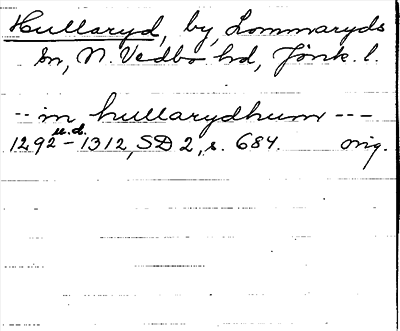 Hullaryd, by, Lommaryds
sn, N. Vedbo hd, Jönk. l.
-- in hullarydhum ---
1292 u.d. - 1312, SD 2, s. 684. orig.